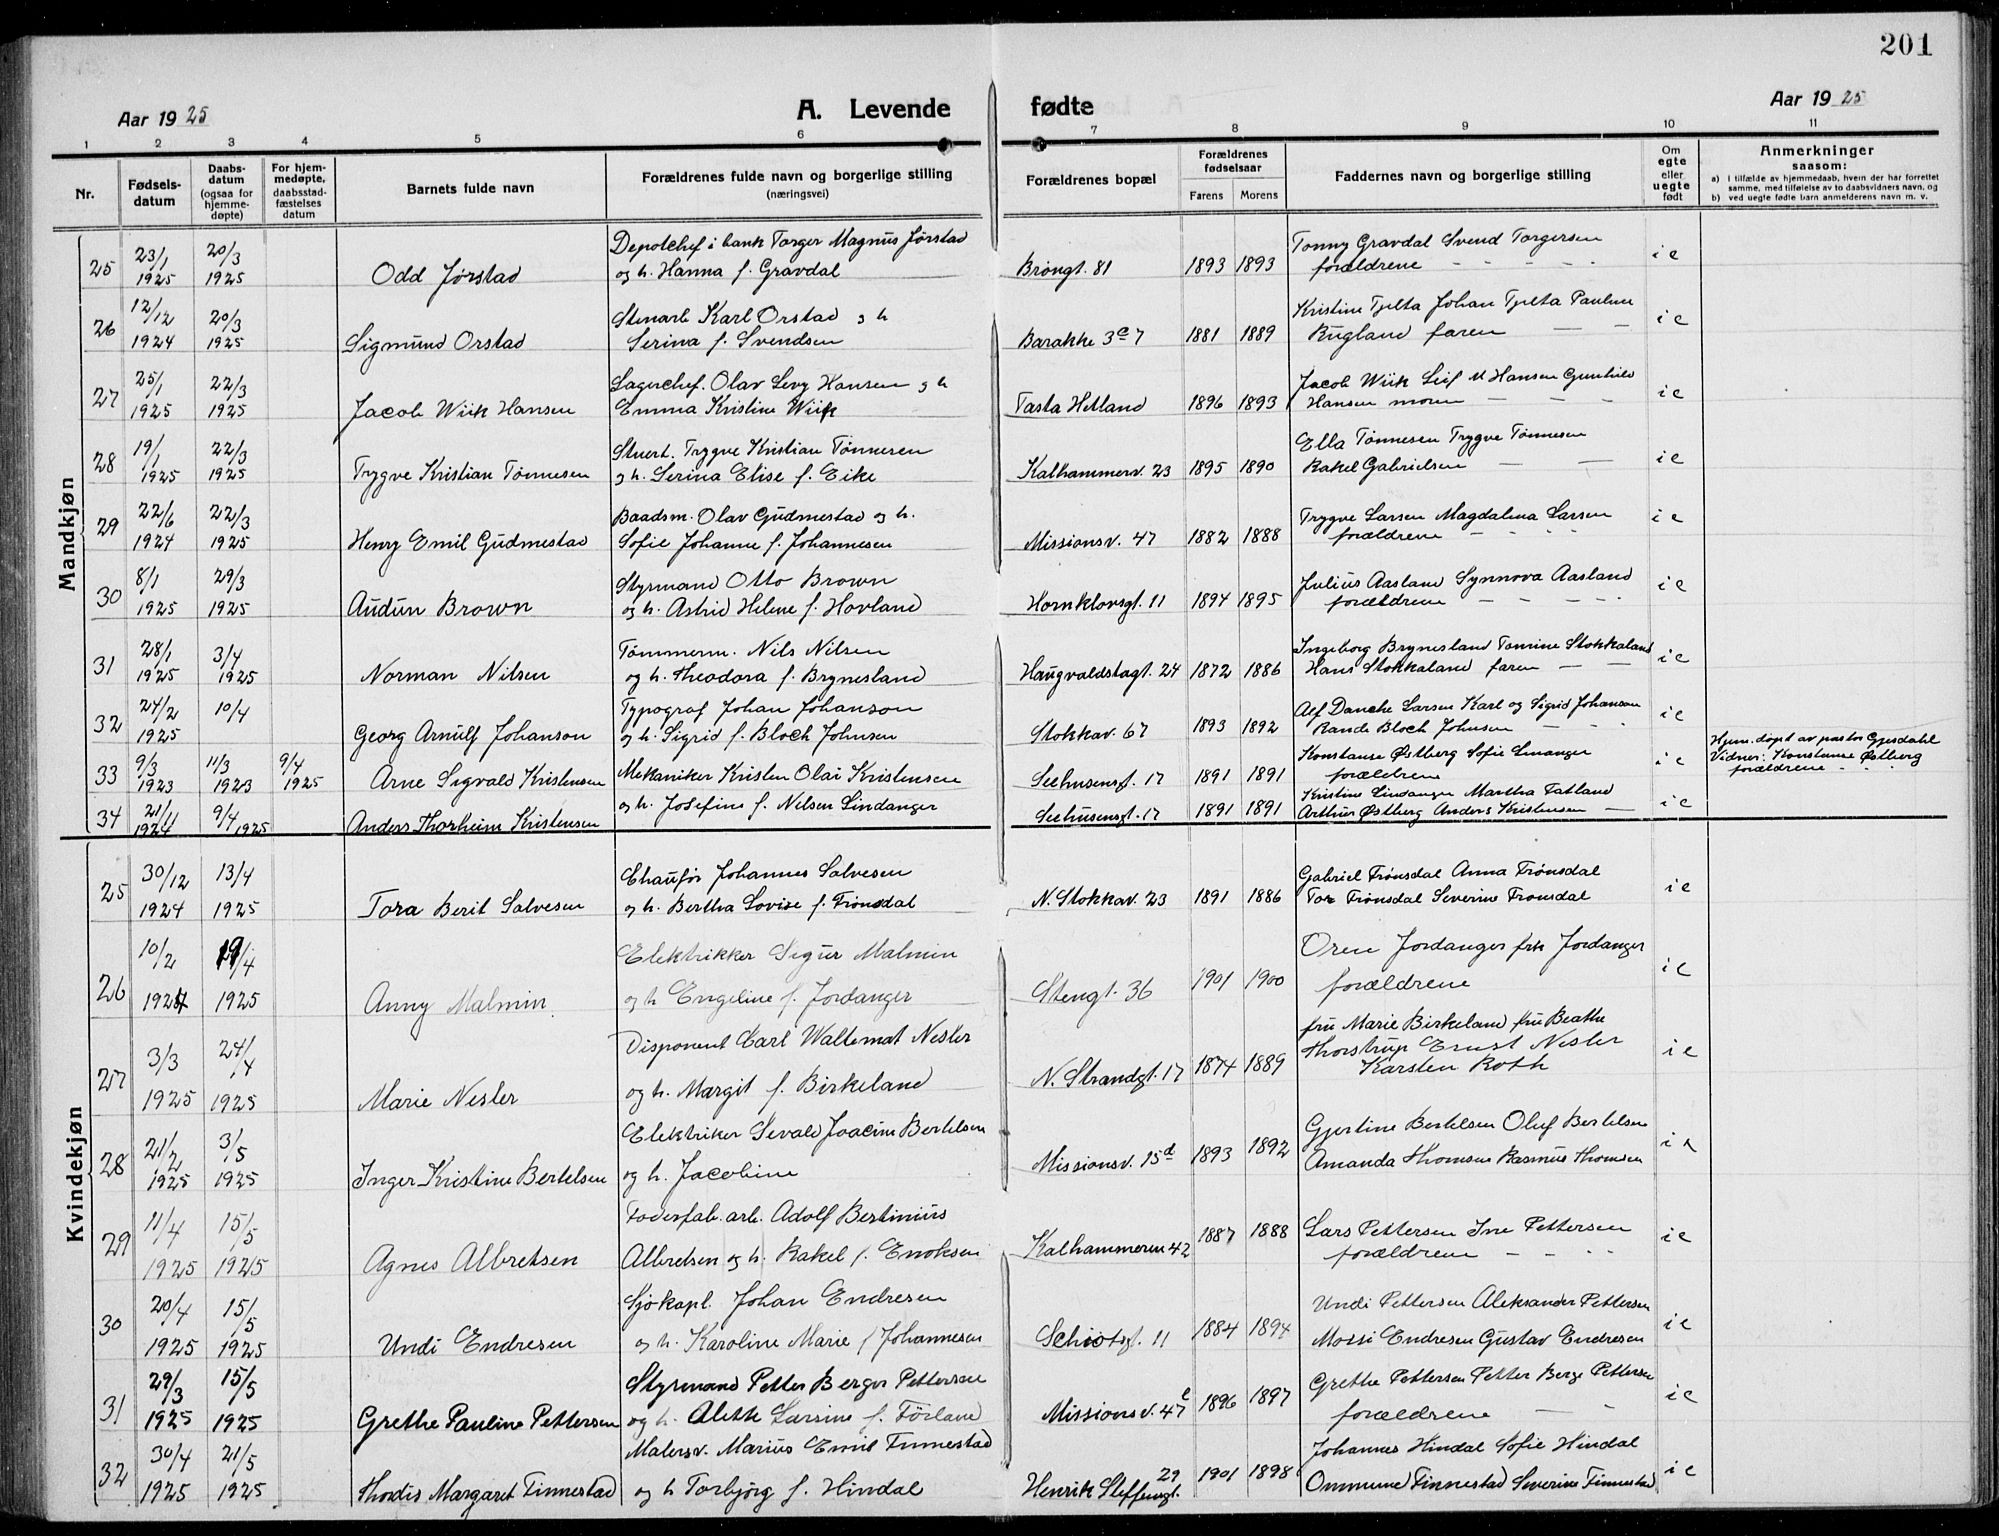 201
Aar 1925 A. Levende fødte Aar 1925
1 2 3 4 5 6 7 8 9 10 11
Nr. Fødsels-datum Daabs-datum (ogsaa for hjemme-døpte) For hjem-medøpte, daabsstad-fæstelses datum Barnets fulde navn Forældrenes fulde navn og borgerlige stilling (næringsvei) Forældrenes bopæl Forældrenes fødselsaar Farens Morens Faddernes navn og borgerlige stilling Om egte eller uegte født Anmerkninger saasom:
a) I tilfælde av hjemmedaab, hvem der har forrettet samme, med tilføielse av to daabsvidners navn, og
b) ved uegte fødte barn anmelderens navn m. v.
Mandkjøn
25 23/1 1925 20/3 1925 Odd Jørstad Depotchef i bank Torger Magnus Jørstad og h. Hanna f. Gravdal Brøngt. 81 1893 1893 Tonny Gravdal Svend Torgersen forældrene i e
26 12/12 1924 20/3 1925 Sigmund Orstad Stenarb Karl Orstad og h Serina f. Svendsen Barakke 3e 7 1881 1889 Kristine Tjelta Johan Tjelta Pauline Bugland faren i e
27 25/1 1925 22/3 1925 Jacob Wiik Hansen Lagerchef. Olav Levy Hansen og h Emma Kristine Wiik Tasta Hetland 1896 1893 Jacob Wiik Leif M Hansen Gunhild Hansen moren i e
28 19/1 1925 22/3 1925 Trygve Kristian Tønnesen Stuert. Trygve Kristian Tønnesen og h. Serina Elise f. Eike Kalhammerv. 23 1895 1890 Ella Tønnesen Trygve Tønnesen Rakel Gabrielsen i e
29 22/6 1924 22/3 1925 Henry Emil Gudmestad Baadsm. Olav Gudmestad og h. Sofie Johanne f. Johannesen Missionsv. 47 1882 1888 Trygve Larsen Magdalena Larsen forældrene i e
30 8/1 1925 29/3 1925 Audun Brown Styrmand Otto Brown og h. Astrid Helene f. Hovland Hornklovsgt. 11 1894 1895 Julius Aasland Synnova Aasland forældrene i e
31 28/1 1925 3/4 1925 Norman Nilsen Tømmerm. Nils Nilsen og h. Theodora f. Brynesland Haugvaldstagt. 24 1872 1886 Ingeborg Brynesland Tomine Stokkaland Hans Stokkaland faren i e
32 24/2 1925 10/4 Georg Arnulf Johanson Typograf Johan Johanson og h. Sigrid f. Bloch Johnsen Stokkav. 67 1893 1892 Alf Danche Larsen Karl og Sigrid Johanson Rande Bloch Johnsen i e
33 9/3 1923 11/3 1923 9/4 1925 Arne Sigvald Kristensen Mekaniker Kristen Olai Kristensen Seehusensgt. 17 1891 1891 Konstanse Østberg Sofie forældrene i e Hjem. døpt av pastor Gjesdahl Vidner: Konstanse Østberg forældrene
34 21/11 1924 9/4 1925 Anders Thorheim Kristensen og h. Josefine f. Nilsen Lindanger Seehusensgt. 17 1891 1891 Kristine Lindanger Martha Tatland Arthur Østberg Anders Kristensen i e
Kvindekjøn
25 30/12 1924 13/4 1925 Tora Berit Salvesen Chaufør Johannes Salvesen og h. Bertha Lovise f. Trønsdal N. Stokkav. 23 1891 1886 Gabriel Trønsdal Anna Trønsdal Tor Trønsdal Severine Tronsdal i e
26 10/2 1924 19/4 1925 Anny Malmin Elektrikker Sigur Malmin og h Engeline f. Jordanger Stengt. 36 1901 1900 Oren Jordanger frk Jordanger forældrene i e
27 3/3 1925 24/4 1925 Marie Nesler Disponent Carl Waltemat Nesler og h. Margit f. Birkeland N. Strandgt. 17 1874 1889 fru Marie Birkeland fru Beathe Thorstrup Ernst Nesler Karsten Roth i e
28 21/2 1925 3/5 1925 Inger Kristine Bertelsen Elektriker Sevald Joacim Bertelsen og h. Jacobine Missionsv. 15d 1893 1892 Gjertine Bertelsen Oluf Bertelsen Amanda Thomsen Rasmus Thomsen i e
29 11/4 1925 15/5 1925 Agnes Albretsen Foderfab. arb. Adolf Bertinius Albretsen og h. Rakel f. Enoksen Kalhammeren 42 1887 1888 Lars Pettersen Ine Pettersen forældrene i e
30 20/4 1925 15/5 1925 Undi Endresen Sjøkapt. Johan Endresen og h. Karoline Marie f Johannesen Schiøtsgt. 11 1884 1894 Undi Pettersen Aleksander Pettersen Mossi Endresen Gustav Endresen i e
31 29/3 1925 15/5 1925 Grethe Pauline Pettersen Styrmand Petter Berger Pettersen og h. Alette Larsine f. Førland Missionsv. 47e 1896 1897 Grethe Pettersen Petter Berge Pettersen forældrene i e
32 30/4 1925 21/5 1925 Thordis Margaret Finnestad Malersv. Marius Emil Finnestad og h Torbjørg f. Hindal Henrik Steffensgt. 29 1901 1898 Johannes Hindal Sofie Hindal Ommund Finnestad Severine Finnestad i e